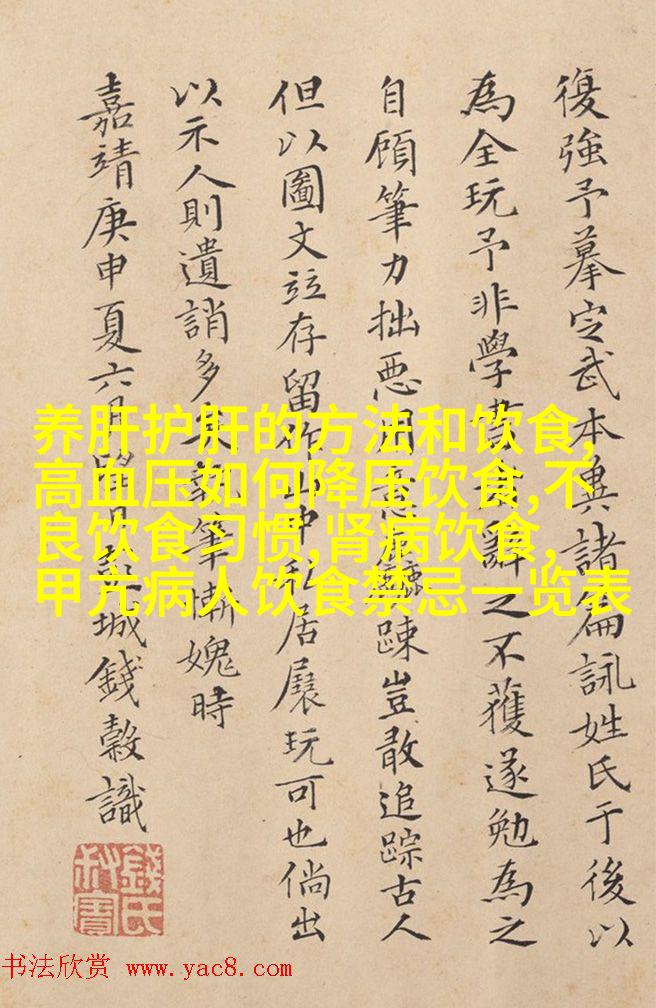 復強予摹定武本與諸篇詠姓氏于後以
為全玩予非學書辭之不獲遂勉為之
自顧筆力拙惡用意踈豈敢追踪古人
但以圖文竝存留山中私居展玩可也倘出
以示人則遺誚多矣執筆慚媿時
嘉靖庚申夏六月城錢榖識
錢氏叔寶
养肝护肝的方法和饮食,
高血压如何降压饮食,不
良饮食习惯,肾病饮食,
甲亢病人饮食禁忌一览表
书法欣赏 www.yac8.com